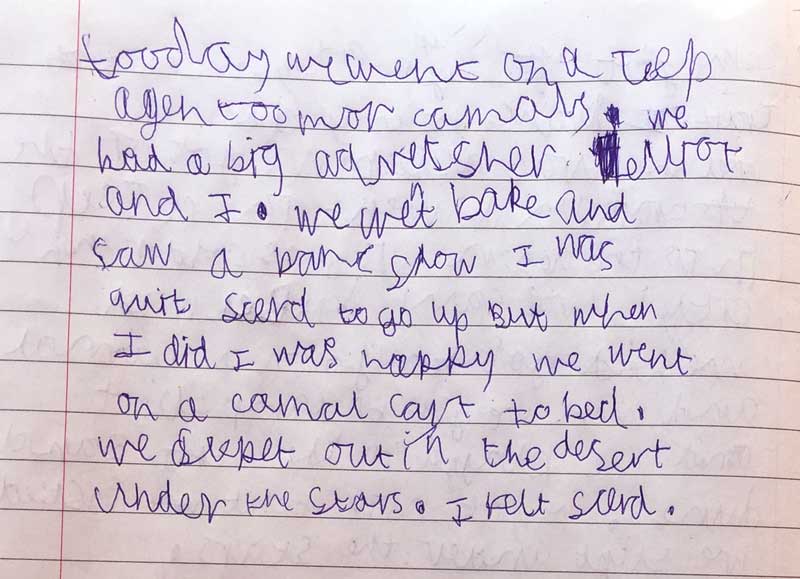 tooday we went on a teep
agen too mor camals. we
had a big advetsher. elliot
and I. we wet bake and
saw a banc show I was
quit scerd to go up But when
I did I was happy we went
on a camal caft to bed.
we slepet out in the desert
under the stars. I felt scerd.